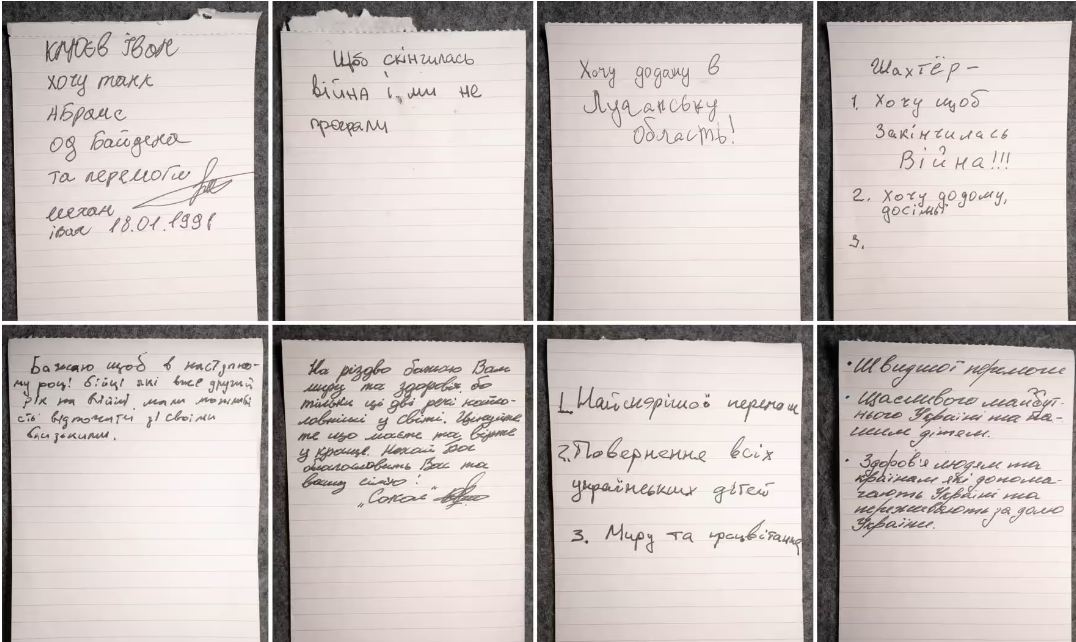 хочу танк
Абрамс
од Байдена
та перемоги
іван 18.01.1991
Щоб скінчилась
війна і, ми не
програли
Хочу додому в
Луганську
область!
Шахтёр –
1. Хочу щоб
Закінчилась
Війна!!!
2. Хочу додому,
досім'ї
3.
Бажаю щоб в наступно-
му році бійці які вже другий
рік на війні мали можливі
сть відпочити зі своїми
близькими.
На різдво бажаю Вам
миру та здоров'я бо
тільки ці дві речі найго-
ловніші у світі. Цінуйте
те що маєте та вірте
у краще. Нехай Бог
благословить Вас та
вашу сім'ю!
„Сокол"
1. Найскорішої перемоги
2. Повернення всіх
українських дітей
3. Миру та процвітання
• Швидшої перемоги
• Щасливого майбут-
нього Україні та на-
шим дітем.
• Здоров'я людям та
країнам які допома-
гають Україні та
переживають за долю
України.